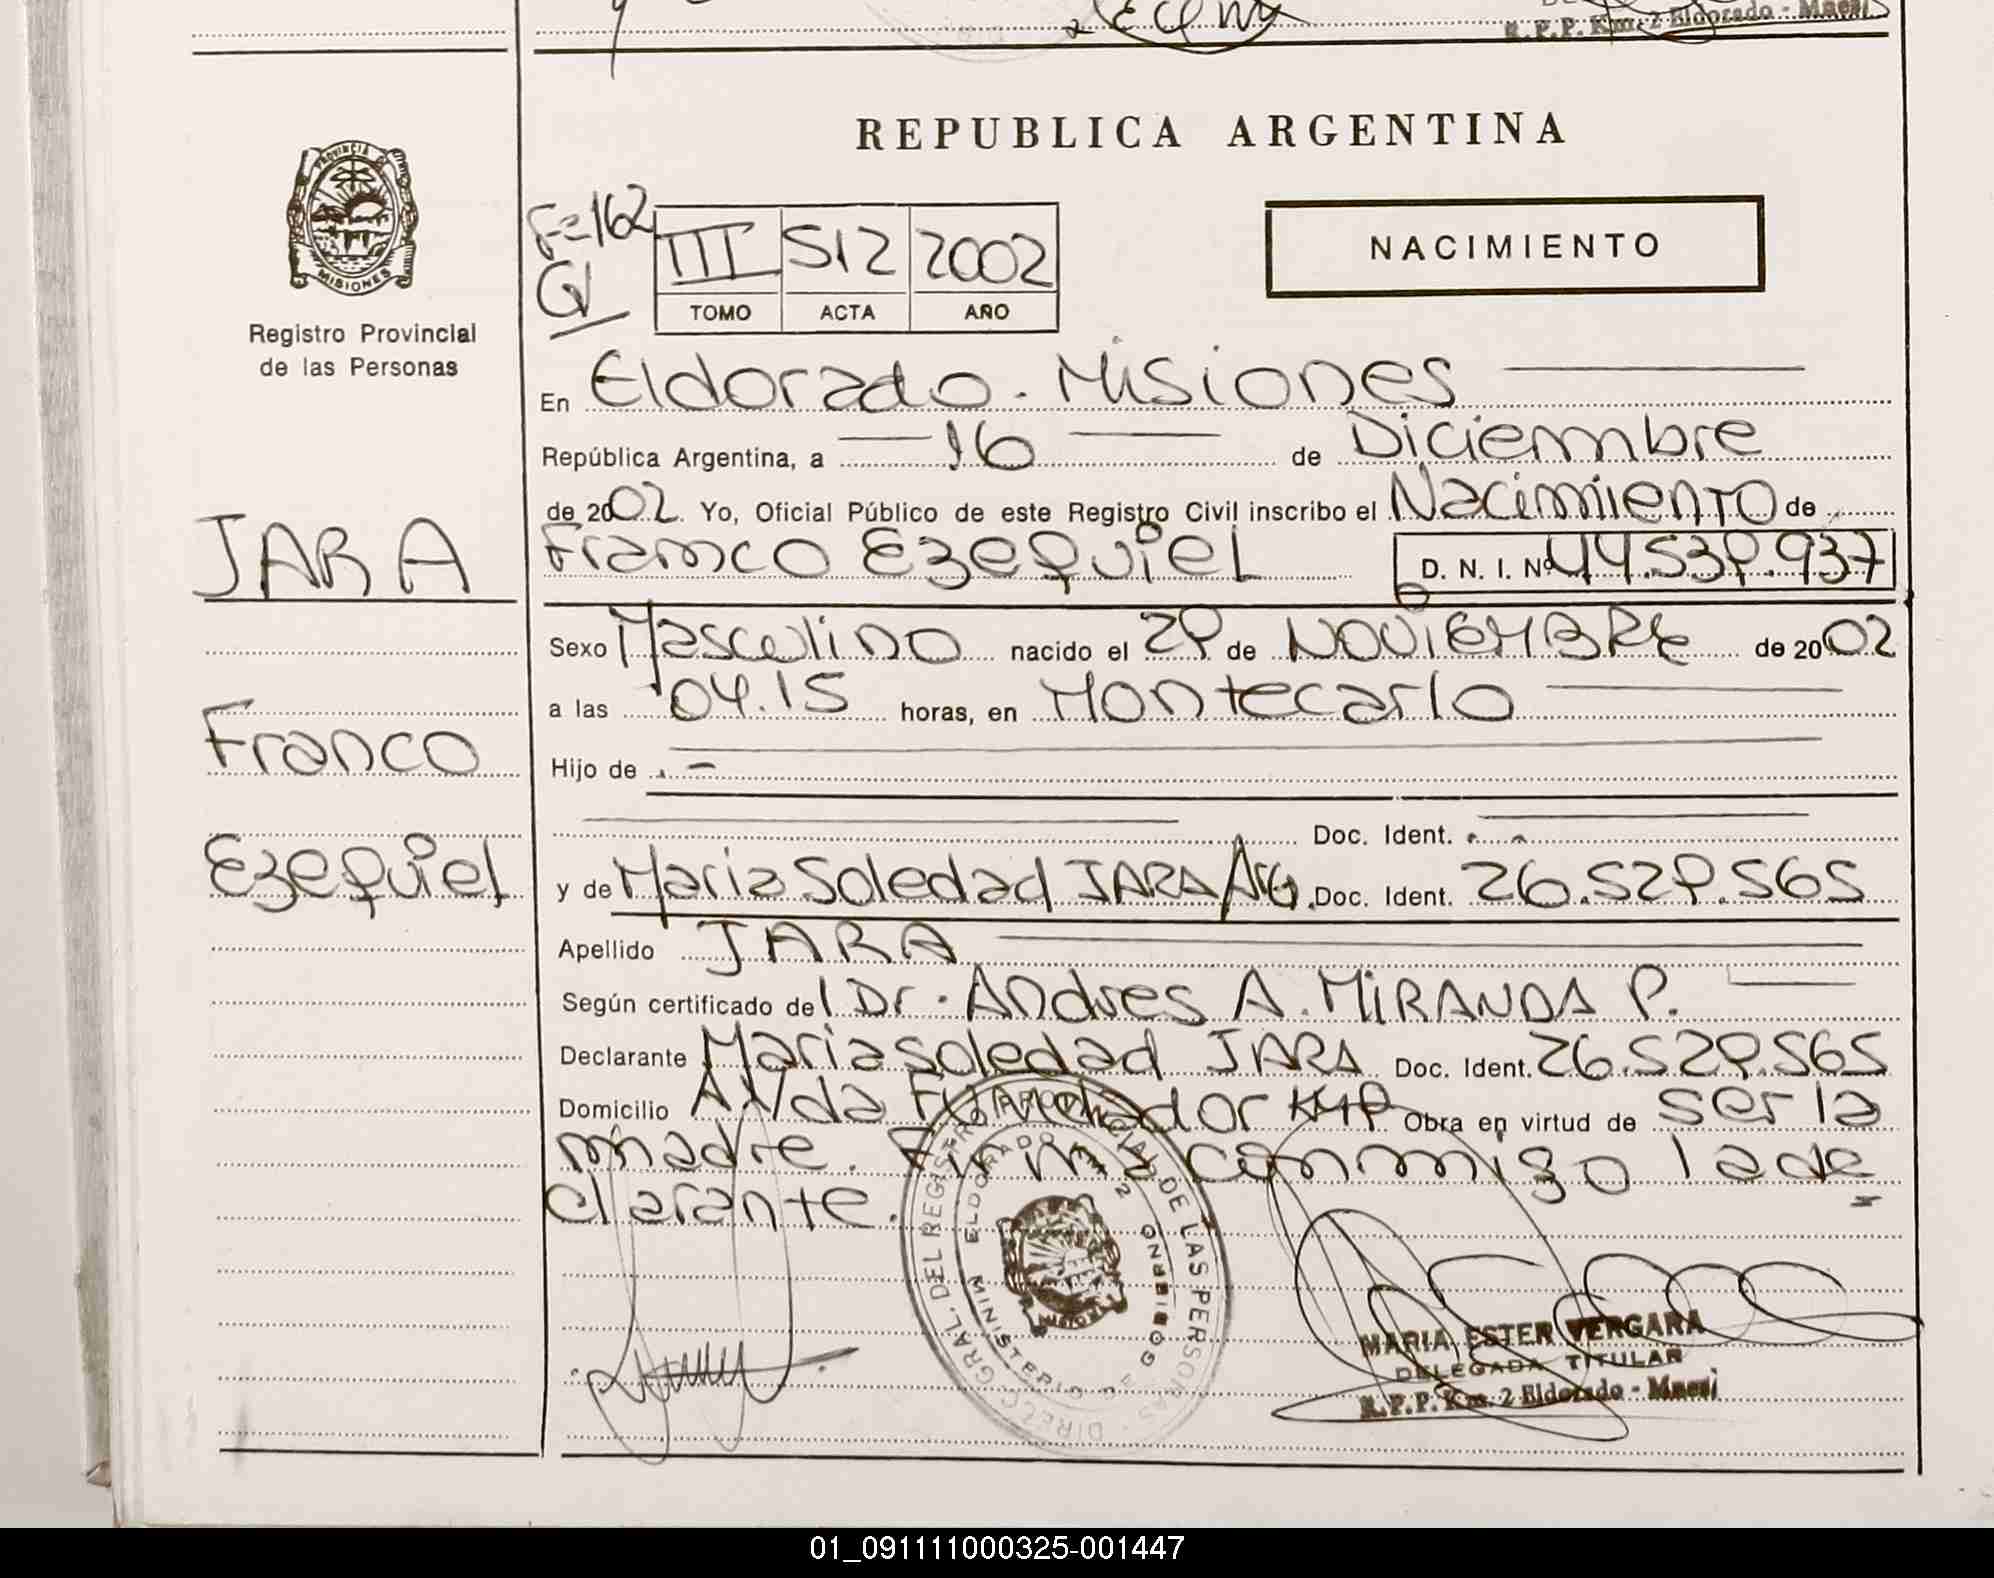 R.P.P. Km. 2 Eldorado - Mnesi
REPUBLICA ARGENTINA
PROVINCIA DE
MISIONES
Registro Provincial
de las Personas
F=162
III 512 2002
TOMO ACTA AÑO
NACIMIENTO
En Eldorado - Misiones
República Argentina, a 16 de Diciembre
de 2002. Yo, Oficial Público de este Registro Civil inscribo el Nacimiento de
JARA
Franco Ezequiel D. N. I. Nº 44.539.937
Sexo Masculino nacido el 29 de NOVIEMBRE de 2002
a las 04.15 horas, en Montecarlo
Franco
Hijo de
Doc. Ident.
Ezequiel
y de Maria Soledad JARA Arg. Doc. Ident. 26.529.565
Apellido JARA
Según certificado del Dr. Andres A. MIRANDA P.
Declarante Maria Soledad JARA Doc. Ident. 26.529.565
Domicilio AVda Fundador Km9 Obra en virtud de ser la
madre. Firma conmigo la de=
clarante.
DIRECC. GRAL. DEL REGISTRO PROVINCIAL DE LAS PERSONAS
ELDORADO KM 2
MINISTERIO DE GOBIERNO
MISIONES
MARIA ESTER VERGARA
DELEGADA TITULAR
R.P.P. Km. 2 Eldorado - Mnesi
01_091111000325-001447